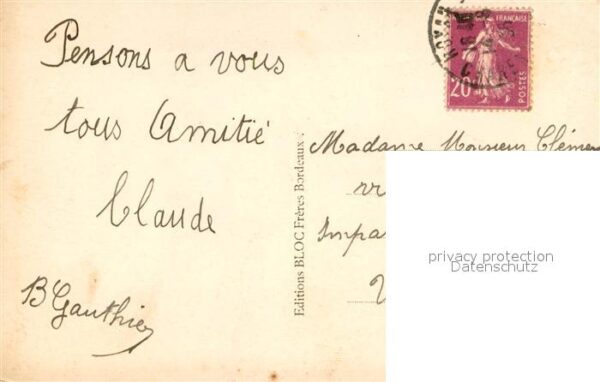 Pensons a vous
tous Amitié
Claude
B Gauthier
Editions BLOC Frères Bordeaux
FRANÇAISE
20
POSTES
ROYAN
Madame Monsieur Clémen
Impa
privacy protection
Datenschutz